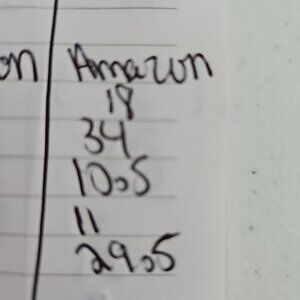 on Amazon
18
34
10.5
11
29.5